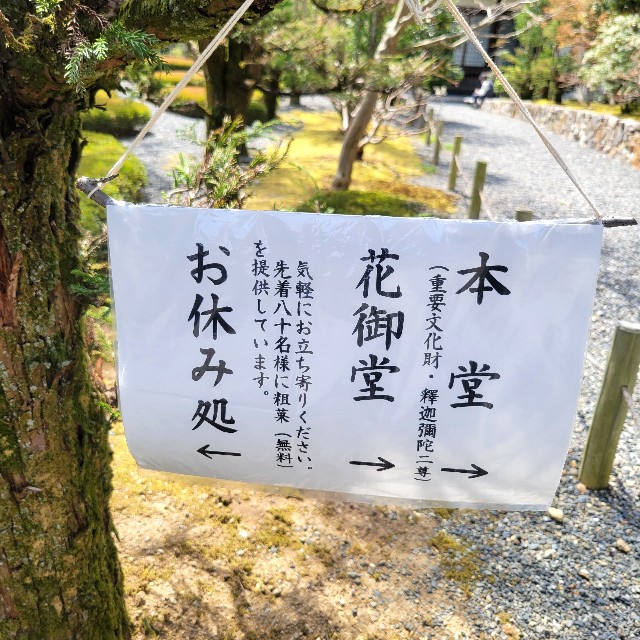 本堂
(重要文化財・釋迦彌陀二尊)
→
花御堂
→
気軽にお立ち寄りください。
先着八十名様に粗菓(無料)
を提供しています。
お休み処
←